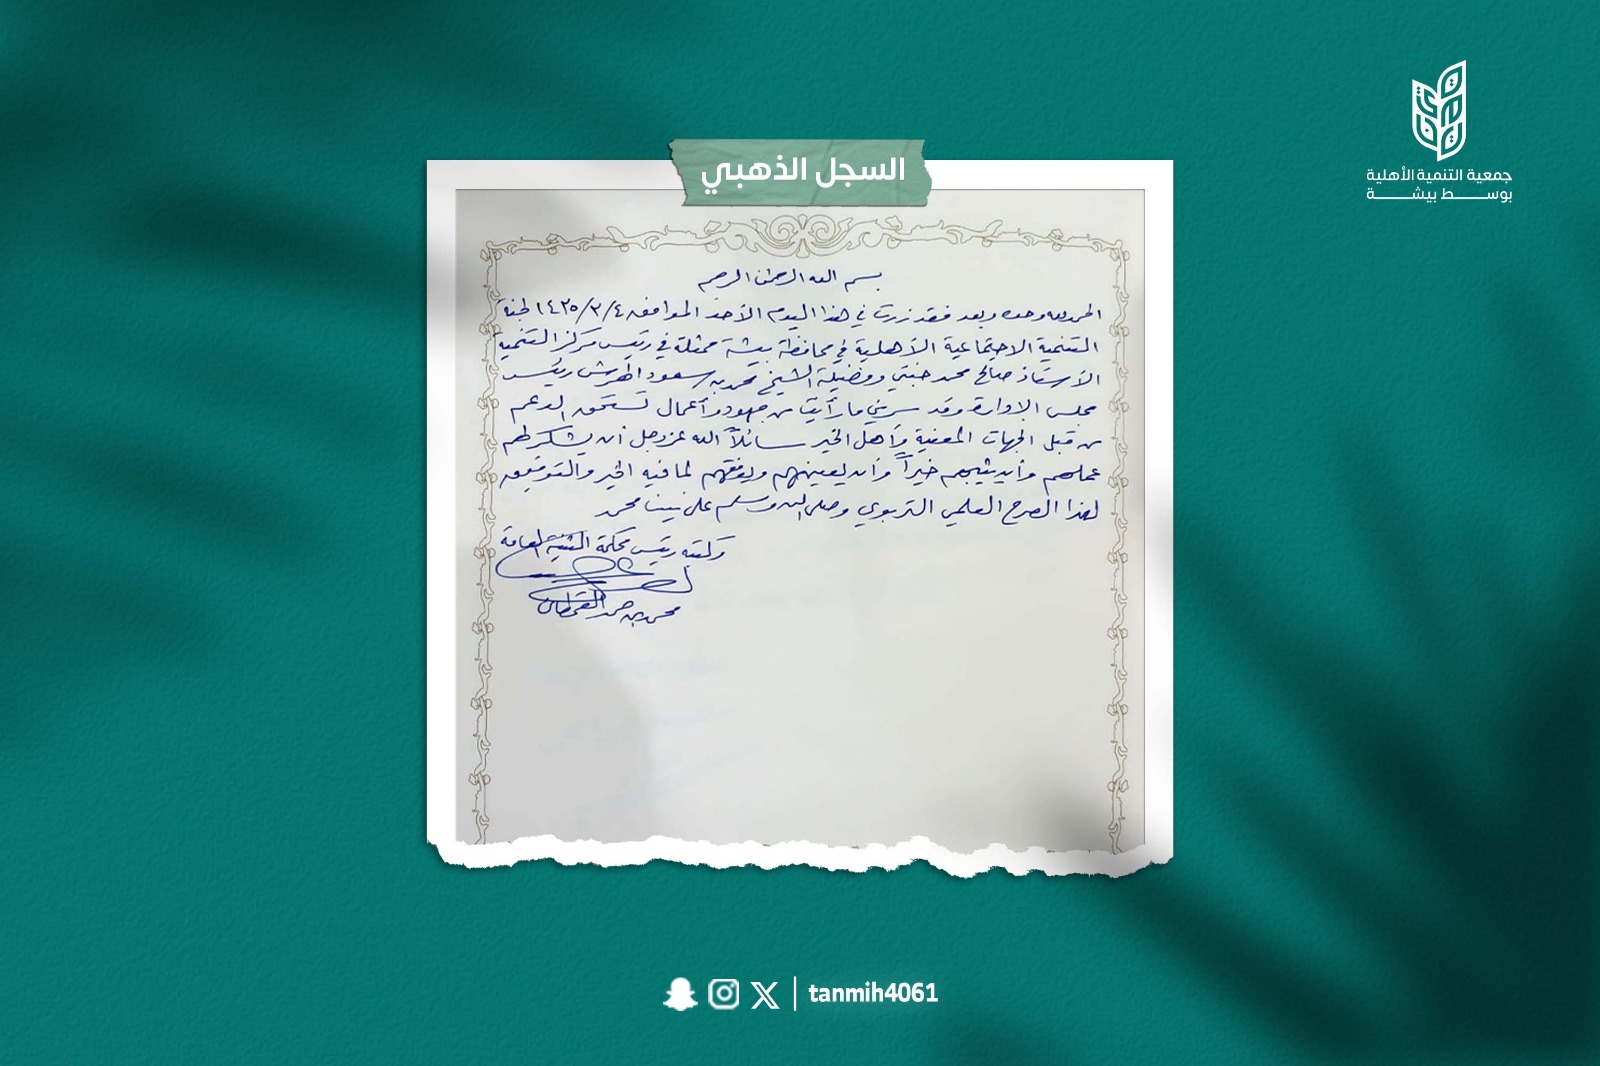 جمعية التنمية الأهلية
بوسط بيشة
السجل الذهبي
بسم الله الرحمن الرحيم
الحمد لله وحده وبعد فقد زرت في هذا اليوم الأحد الموافق ١٤٣٥/٣/٤ لجنة
التنمية الاجتماعية الأهلية في محافظة بيشة ممثلة في رئيس مركز التنمية
الأستاذ صالح محمد حنتي وفضيلة الشيخ محمد بن سعود رئيس
مجلس الإدارة وقد سرني ما رأيت من جهود وأعمال تستحق الدعم
من قبل الجهات المعنية وأهل الخير سائلاً الله عز وجل أن يشكر لهم
عملهم وأن يثيبهم خيراً وأن يعينهم ويوفقهم لما فيه الخير والتوفيق
لهذا الصرح العلمي التربوي وصلى الله وسلم على نبينا محمد
وكتبه رئيس محكمة العامة
محمد بن حمد القحطاني
tanmih4061